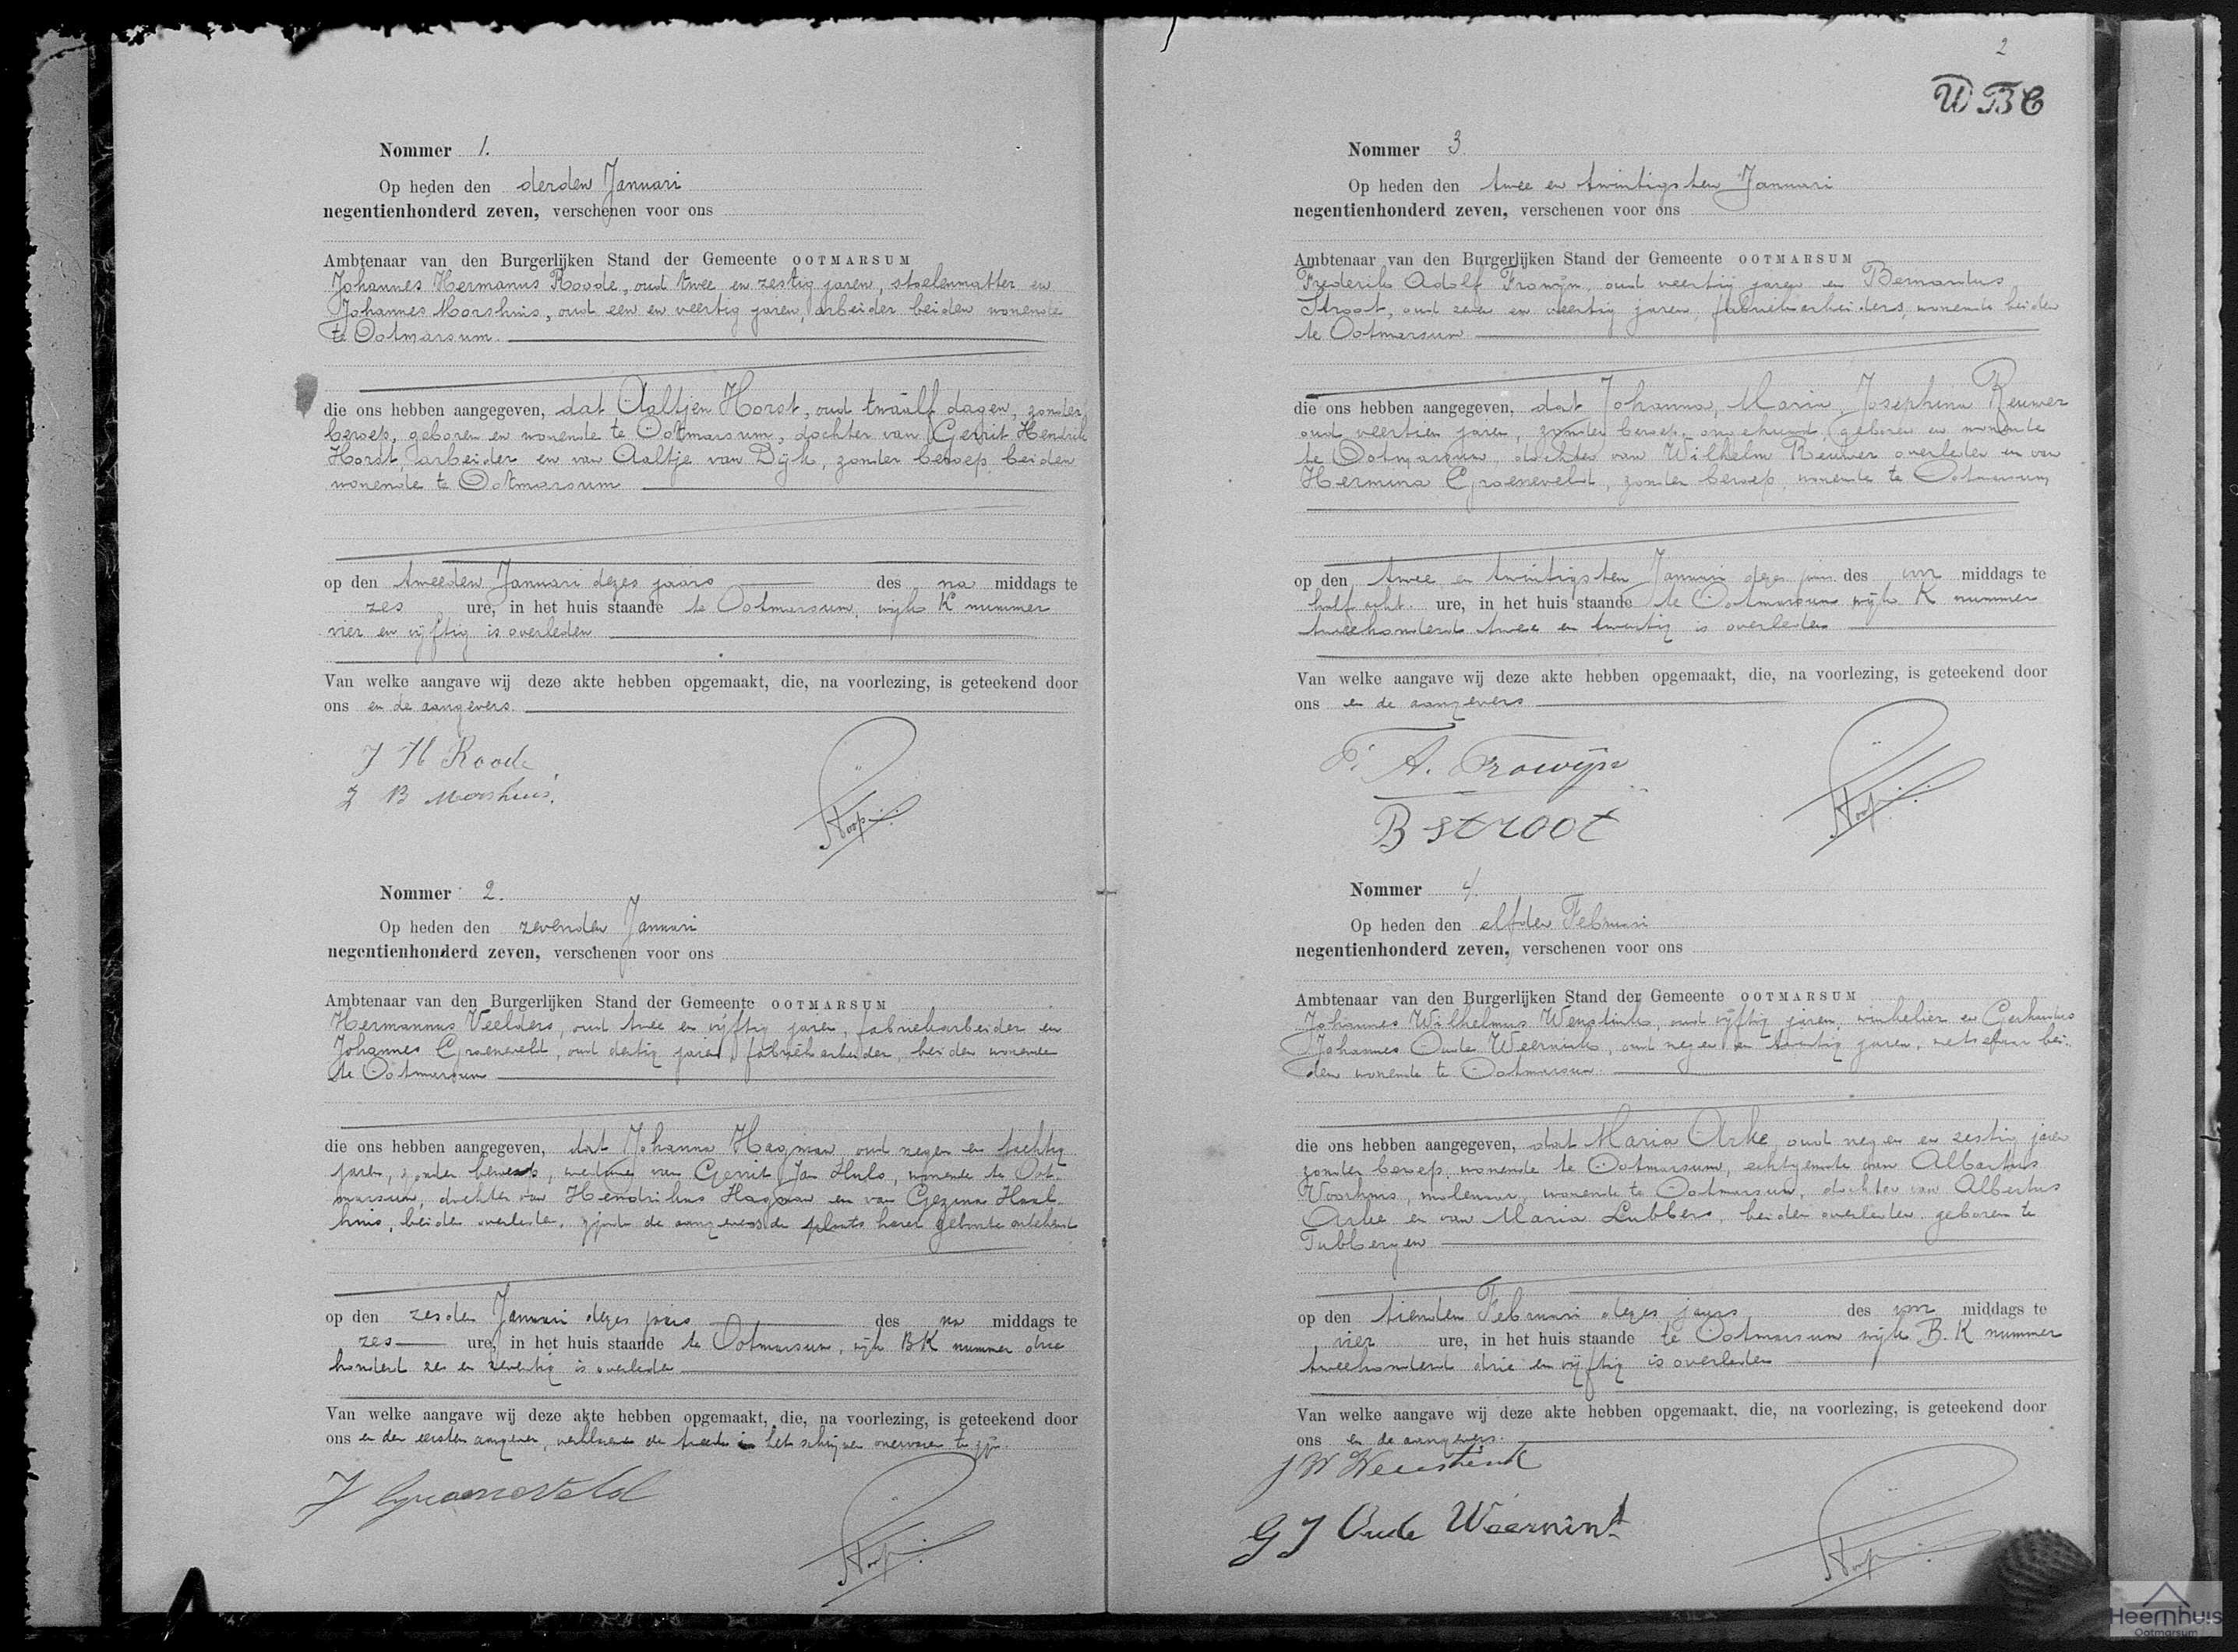 Nommer 1.
Op heden den derden Januari
negentienhonderd zeven, verschenen voor ons
Ambtenaar van den Burgerlijken Stand der Gemeente OOTMARSUM
Johannes Hermanus Roode, oud twee en zestig jaren, stoelenmatter en
Johannes Morshuis, oud een en veertig jaren, arbeider beiden wonende
te Ootmarsum.
die ons hebben aangegeven, dat Aaltjen Horst, oud twaalf dagen, zonder
beroep, geboren en wonende te Ootmarsum, dochter van Gerrit Hendrik
Horst, arbeider en van Aaltje van Dijk, zonder beroep, beiden
wonende te Ootmarsum
op den tweeden Januari dezes jaars des na middags te
zes ure, in het huis staande te Ootmarsum, wijk K nummer
vier en vijftig is overleden
Van welke aangave wij deze akte hebben opgemaakt, die, na voorlezing, is geteekend door
ons en de aangevers.
J H Roode
J B Morshuis.
Stoop
Nommer 2.
Op heden den zevenden Januari
negentienhonderd zeven, verschenen voor ons
Ambtenaar van den Burgerlijken Stand der Gemeente OOTMARSUM
Hermannus Veelders, oud twee en vijftig jaren, fabriekarbeider en
Johannes Groeneveld, oud dertig jaren, fabriekarbeider, beiden wonende
te Ootmarsum
die ons hebben aangegeven, dat Johanna Hagman oud negen en tachtig
jaren, zonder beroep, weduwe van Gerrit Jan Huls, wonende te Oot-
marsum, dochter van Hendrikus Hagman en van Gezina Haal-
huis, beiden overleden, zijnde de aangevers de plaats harer geboorte onbekend
op den zesden Januari dezes jaars des na middags te
zes ure, in het huis staande te Ootmarsum, wijk BK nummer drie
honderd zes en zeventig is overleden
Van welke aangave wij deze akte hebben opgemaakt, die, na voorlezing, is geteekend door
ons en den eersten aangever, verklarende de tweede in het schrijven onervaren te zijn.
J Groeneveld
Stoop
2
WBC
Nommer 3
Op heden den twee en twintigsten Januari
negentienhonderd zeven, verschenen voor ons
Ambtenaar van den Burgerlijken Stand der Gemeente OOTMARSUM
Frederik Adolf Frowijn, oud veertig jaren en Bernardus
Stroot, oud zeven en veertig jaren, fabriekarbeiders, wonende beiden
te Ootmarsum
die ons hebben aangegeven, dat Johanna, Maria, Josephina Reuwer
oud veertien jaren, zonder beroep, ongehuwd, geboren en wonende
te Ootmarsum, dochter van Wilhelm Reuwer overleden en van
Hermina Groeneveld, zonder beroep, wonende te Ootmarsum
op den twee en twintigsten Januari dezes jaars des voor middags te
half acht ure, in het huis staande te Ootmarsum wijk K nummer
tweehonderd twee en twintig is overleden
Van welke aangave wij deze akte hebben opgemaakt, die, na voorlezing, is geteekend door
ons en de aangevers
F. A. Frowijn
B Stroot
Stoop
Nommer 4.
Op heden den elfden Februari
negentienhonderd zeven, verschenen voor ons
Ambtenaar van den Burgerlijken Stand der Gemeente OOTMARSUM
Johannes Wilhelmus Wenstink, oud vijftig jaren, winkelier en Gerhardus
Johannes Oude Weernink, oud negen en twintig jaren, metselaar bei-
den wonende te Ootmarsum.
die ons hebben aangegeven, dat Maria Arke oud negen en zestig jaren
zonder beroep, wonende te Ootmarsum, echtgenoote van Albartus
Voorhuis, molenaar, wonende te Ootmarsum, dochter van Albertus
Arke en van Maria Lubbers, beiden overleden, geboren te
Tubbergen
op den tienden Februari dezes jaars des voor middags te
vier ure, in het huis staande te Ootmarsum wijk B.K nummer
tweehonderd drie en vijftig is overleden
Van welke aangave wij deze akte hebben opgemaakt, die, na voorlezing, is geteekend door
ons en de aangevers.
J W Wenstink
G J Oude Weernink
Stoop
Heemhuis
Ootmarsum